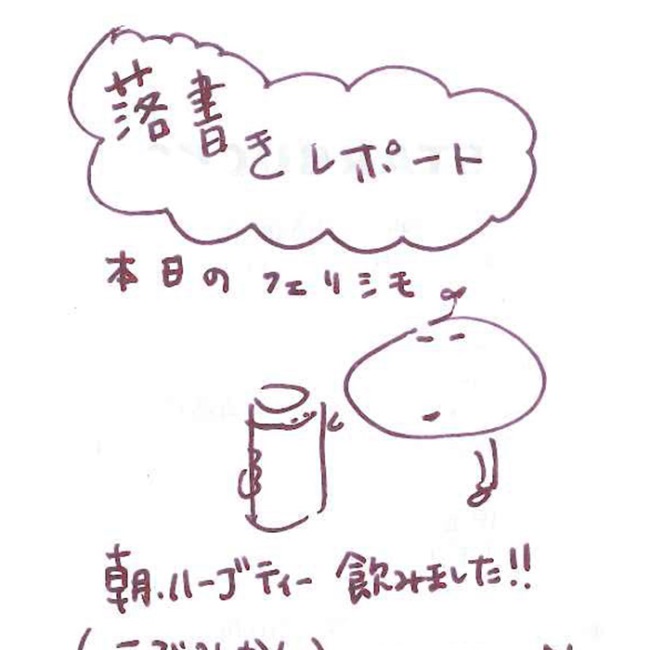 落書きレポート
本日の フェリシモ
朝、ハーブティー 飲みました!!